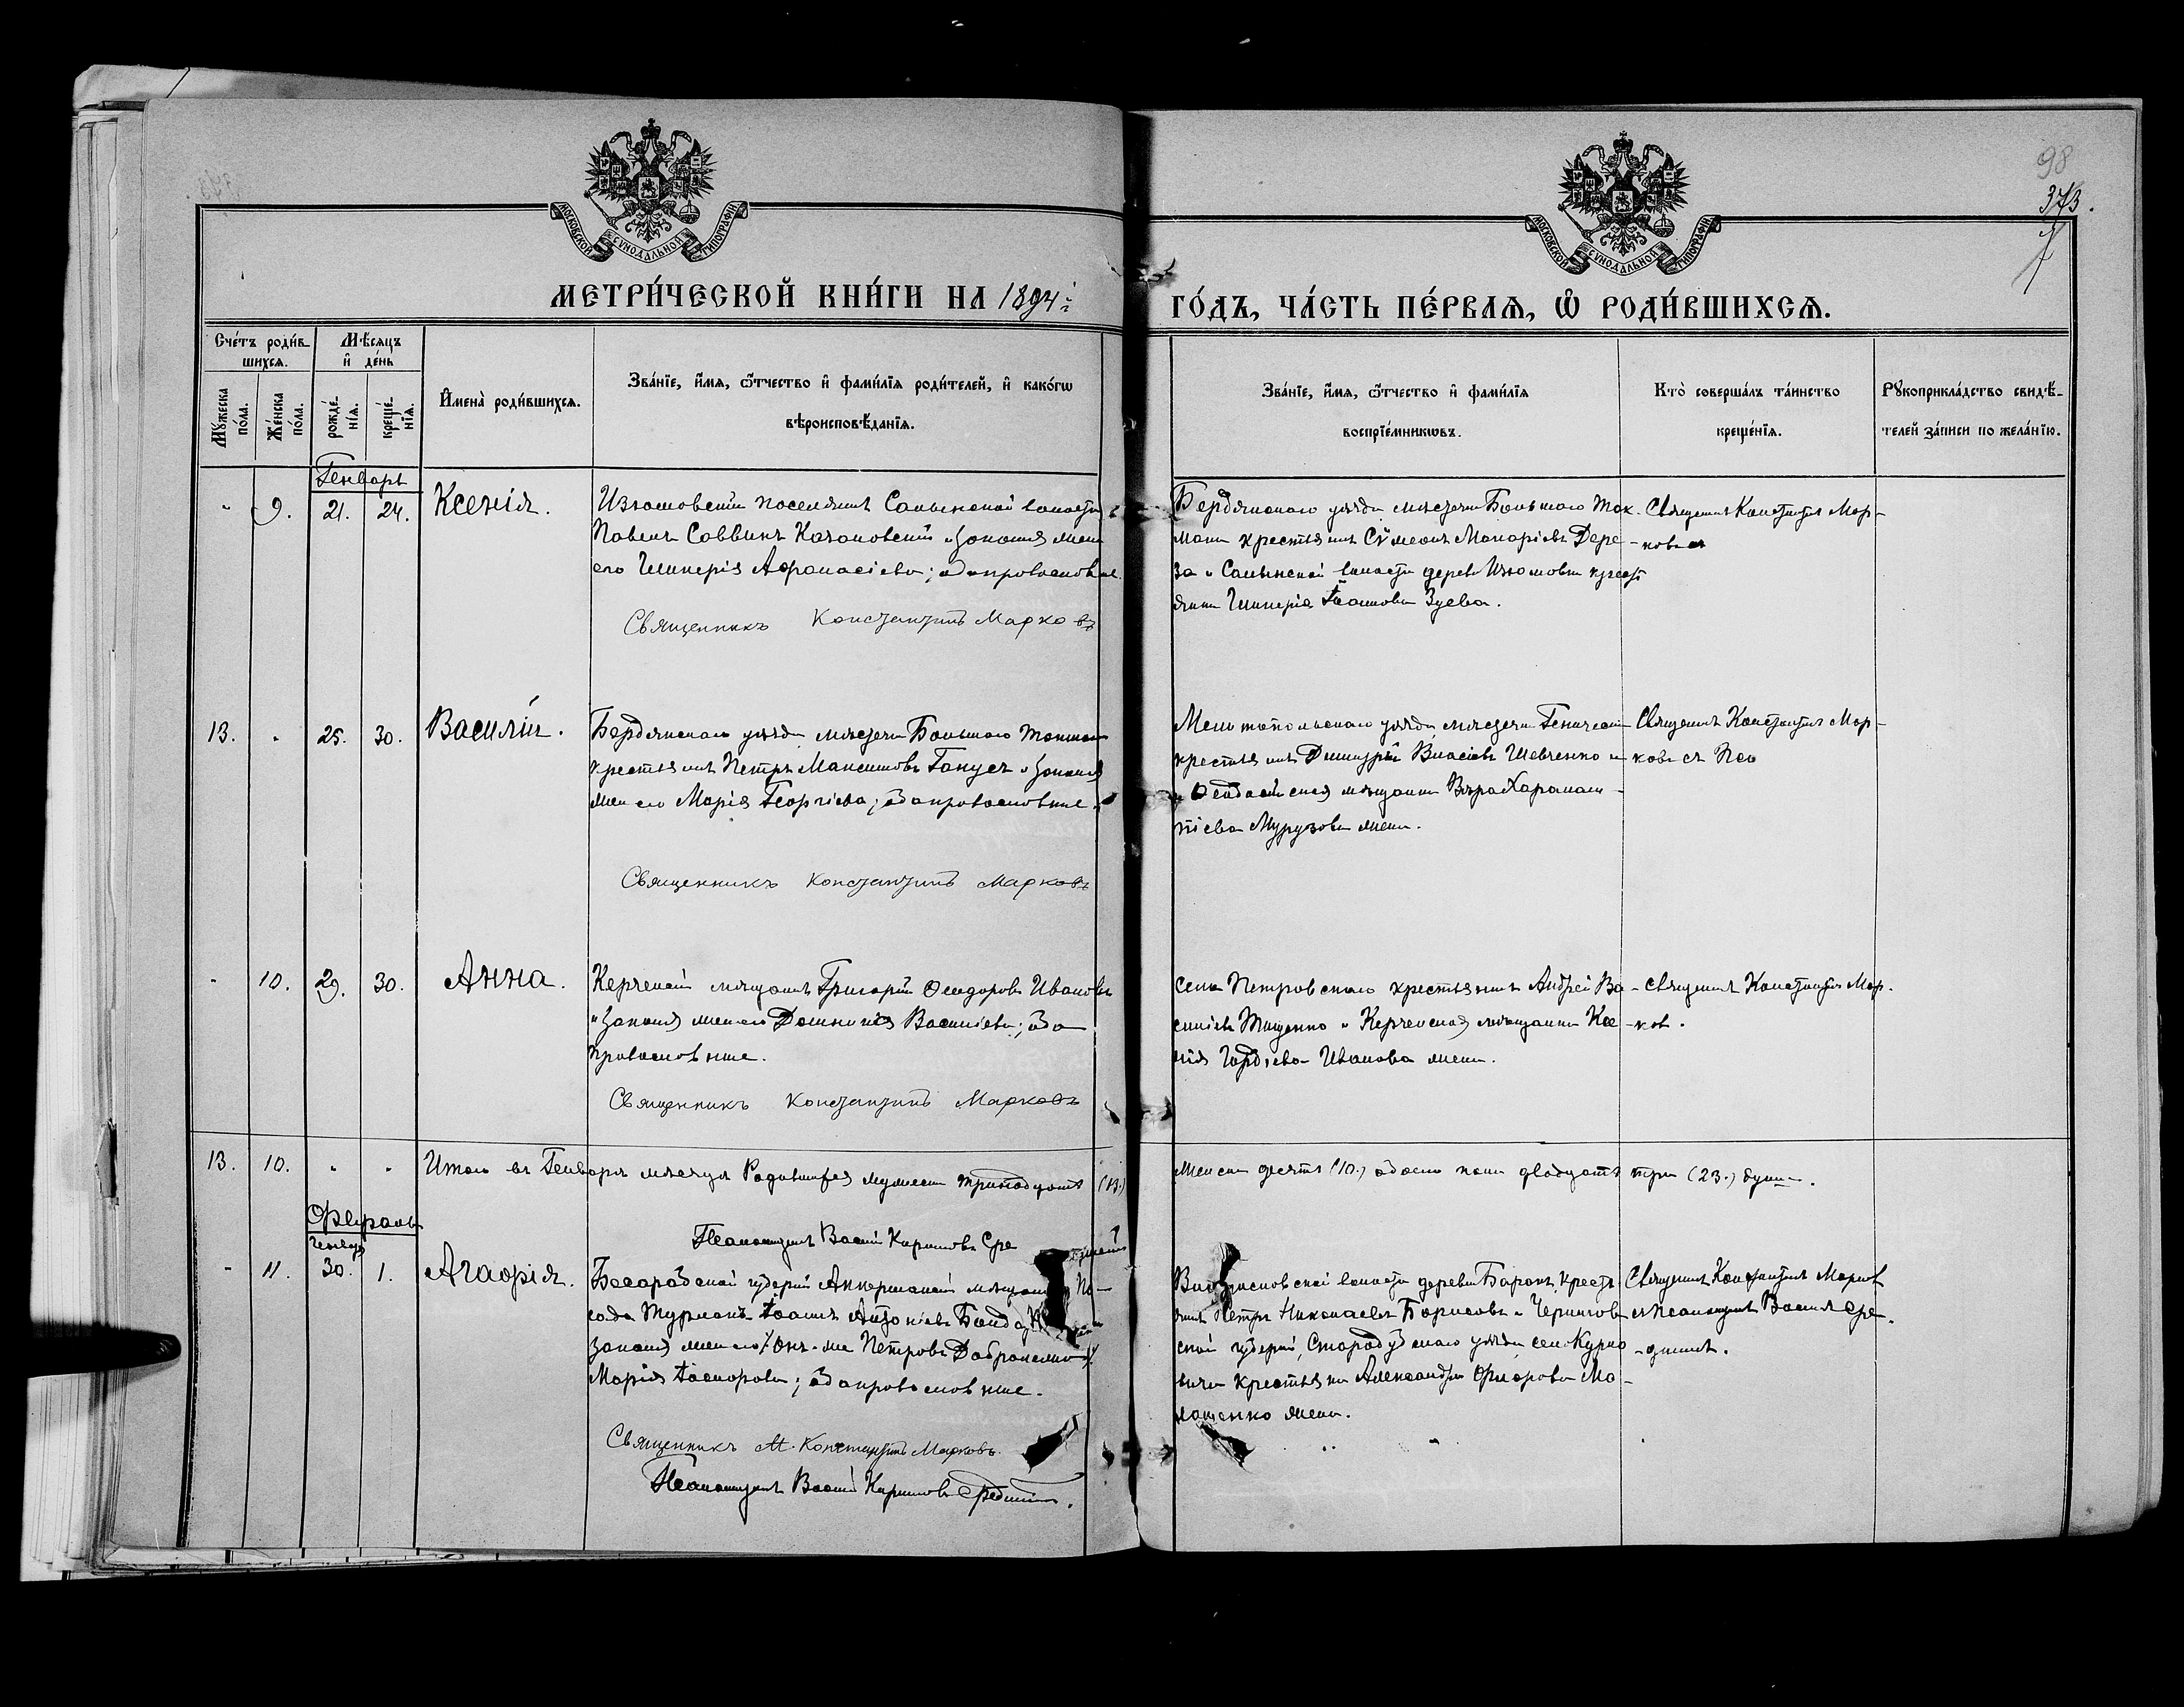 98
373.
МОСКОВСКОЙ СѴНОДАЛЬНОЙ ТИПОГРАФІИ
МОСКОВСКОЙ СѴНОДАЛЬНОЙ ТИПОГРАФІИ
МЕТРИ́ЧЕСКОЙ КНИ́ГИ НА 1894 ГО́ДЪ, ЧА́СТЬ ПЕ́РВАѦ, Ѡ҆ РОДИ́ВШИХСѦ.
Сче́тъ роди́вшихсѧ.
Мѣ́сѧцъ и҆ де́нь
Мꙋ́жеска по́ла.
Же́нска по́ла.
рожде́нїѧ.
креще́нїѧ.
И҆мена̀ роди́вшихсѧ.
Зва́нїе, и҆́мѧ, ѻ҆́тчество и҆ фами́лїѧ роди́телей, и҆ како́гѡ
вѣроисповѣ́данїѧ.
Зва́нїе, и҆́мѧ, ѻ҆́тчество и҆ фами́лїѧ
воспрїе́мникѡвъ.
Кто̀ соверша́лъ та́инство
креще́нїѧ.
Рꙋкоприкла́дство свидѣ́-
телей за́писи по жела́нїю.
Генварь
9. 21. 24. Ксенія.
Изюмовскій поселянинъ Салынской волости
Павелъ Саввинъ Качановскій и законная жена
его Гликерія Афанасіева; оба православные.
Священникъ Константинъ Марковъ
Бердянскаго уѣзда мѣстечка Большаго Ток-
мака крестьянинъ Сѵмеонъ Макаріевъ Дере-
за и Салынской волости деревни Изюмовки крест
янка Гликерія Іоаннова Зуева.
Священникъ Константинъ Мар-
ковъ
13. 25. 30. Василій.
Бердянскаго уѣзда мѣстечка Большаго Токмака
крестьянинъ Петръ Максимовъ Ганусъ и законная
жена его Марія Георгіева; оба православные.
Священникъ Константинъ Марковъ
Мелитопольскаго уѣзда мѣстечка Геническа
крестьянинъ Димитрій Власіевъ Шевченко и
Ѳеодосійская мѣщанка Вѣра Харалам-
піева Мурузова жена.
Священникъ Константинъ Мар-
ковъ съ Пса
10. 29. 30. Анна.
Керченскій мѣщанинъ Григорій Ѳеодоровъ Ивановъ
и законная жена его Домникія Васильева; оба
православные.
Священникъ Константинъ Марковъ
Села Петровскаго крестьянинъ Андрей Ва-
силіевъ Тищенко и Керченская мѣщанка Ксе
нія Гордіева Иванова жена.
Священникъ Константинъ Мар-
ковъ.
13. 10. Итого въ Генварѣ мѣсяцѣ Родившихся мужеска тринадцать (13.) женска десять (10.) обоего пола двадцать три (23.) души.
Февраль
Генваря
11. 30. 1. Агафія.
Псаломщикъ Василій Кириловъ
Бессарабской губерніи Аккерманскій мѣщанинъ По-
сада Турлакъ Іоаннъ Антоніевъ
законная жена его
Марія; оба православные.
Священникъ М. Константинъ Марковъ.
Псаломщикъ Василій Кириловъ
волости деревни Баронъ, кресть
янинъ Петръ Николаевъ Борисовъ и Чернигов
ской губерніи, Стародубскаго уѣзда, села Курко
вичи крестьянка Александра Флорова Ма-
лашенко жена.
Священникъ Константинъ Марковъ
съ Псаломщикомъ Василіемъ Сре-